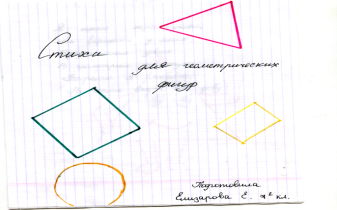 Стихи
для геометрических
фигур
Подготовила
Елизарова Е. 7² кл.